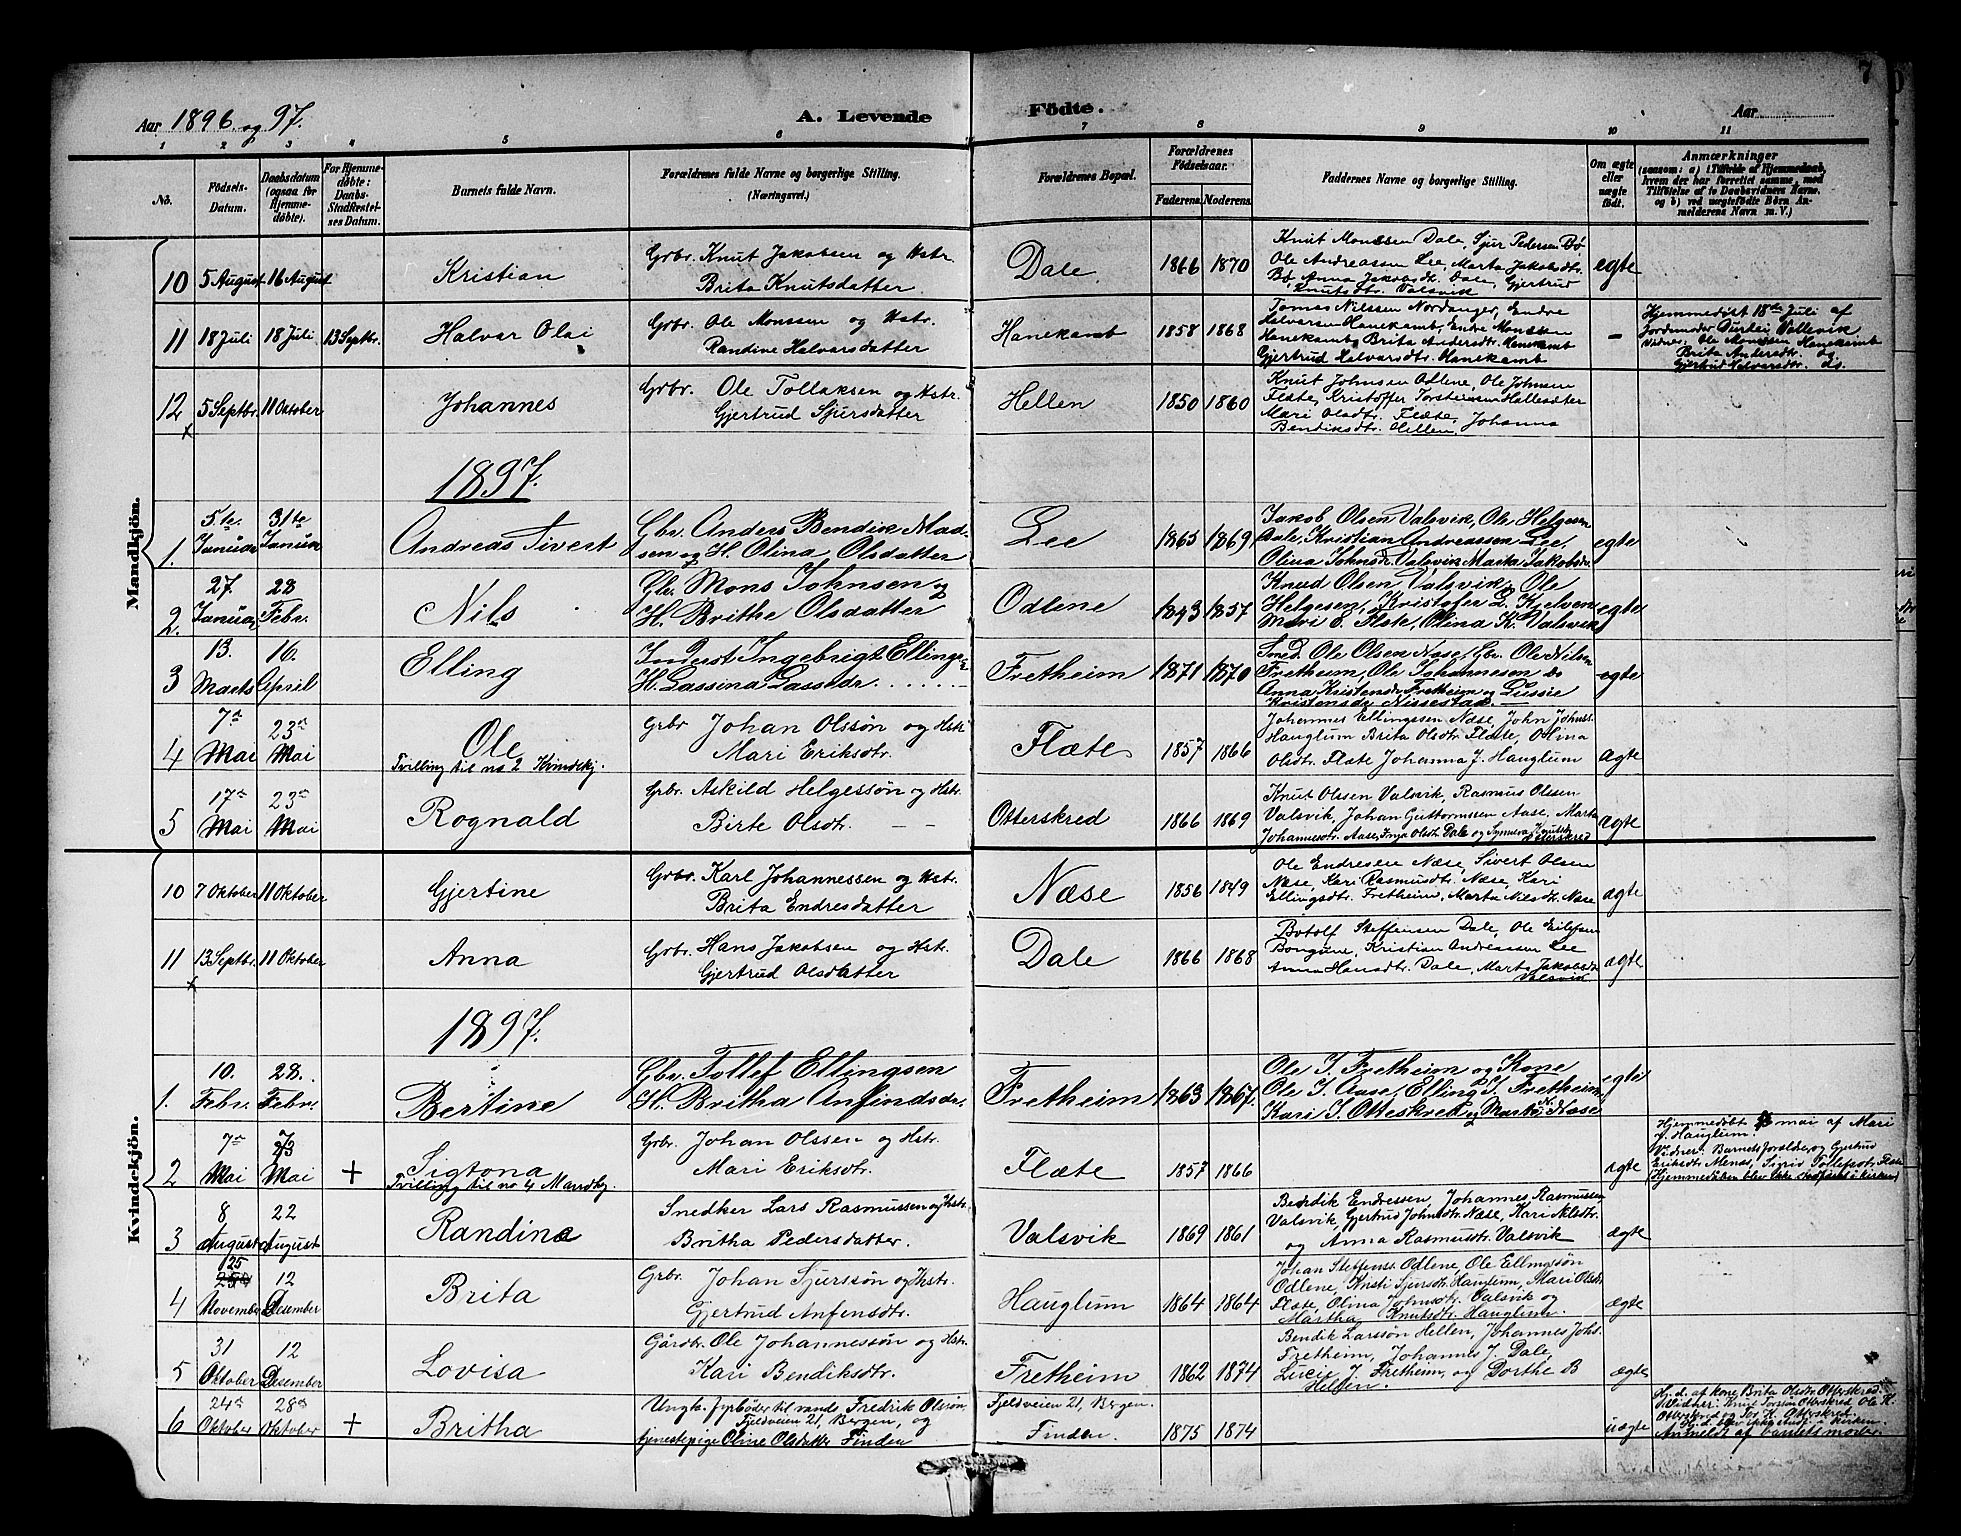 7
Aar 1896 og 97.
A. Levende Födte.
Aar
1 2 3 4 5 6 7 8 9 10 11
No.
Födsels-
Datum.
Daabsdatum
(ogsaa for
Hjemme-
døbte).
For Hjemme-
døbte:
Daabs-
Stadfæstel-
ses Datum.
Barnets fulde Navn.
Forældrenes fulde Navne og borgerlige Stilling.
(Næringsvei.)
Forældrenes Bopæl.
Forældrenes
Födselsaar.
Faderens. Moderens.
Faddernes Navne og borgerlige Stilling.
Om ægte
eller
uægte
født.
Anmærkninger
(saasom: a) i Tilfælde af Hjemmedaab,
hvem der har forrettet samme, med
Tilføielse af to Daabsvidners Navne.
og b) ved uægtefødte Børn An-
melderens Navn m. V.)
Mandkjön.
10 5 August 16 August
Kristian
Grbr. Knut Jakobsen og Hstr.
Brita Knutsdatter
Dale
1866 1870
Knut Monssen Dale, Sjur Pedersen Bø
Ole Andreassen Lee, Marta Jakobsdtr.
Bø, Anna Jakobsdt. Dale, Gjertrud
Knutsdtr. Valsvik
egte
11 18 Juli 18 Juli 13 Septbr.
Halvar Olai
Grbr. Ole Monssen og Hstr.
Randine Halvarsdatter
Hanekamb
1858 1868
Tomas Nilssen Nordanger, Endre
Halvarsen Hanekamb, Endre Monssen
Hanekamb, Brita Andersdtr. Hanekamb
Gjertrud Halvarsdtr. Hanekamb
-
Hjemmedøbt 18de Juli af
Jordmoder Durdei Vallevik
Vidner: Ole Monssen Hanekamb
Brita Andersdtr. og
Gjertrud Halvarsdtr. ds.
12 5 Septbr. 11 Oktober
Johannes
Grbr. Ole Tollaksen og Hstr.
Gjertrud Sjursdatter
Hellen
1850 1860
Knut Johnsen Odlene, Ole Johnsen
Flæte, Kristoffer Torsteinsen Hallesæter
Mari Olsdtr. Flæte, Johanna
Bendiksdtr. Hellen
x
1897.
1. 5.te Januar 31te Januar
Andreas Sivert
Gbr. Anders Bendik Mad-
sen og H. Olina Olsdatter
Lee
1865 1869
Jakob Olsen Valsvik, Ole Helgesen
Aale, Kristian Andreassen Lee,
Olina Johnsd. Valsvik Marta Jakobsdr.
egte
2. 27. Januar 28 Febr.
Nils
Gbr. Mons Johnsen og
H. Brithe Olsdatter
Odlene
1843 1857
Knud Olsen Valsvik, Ole
Helgesen, Kristofer L. Kjelven
Mari E. Flæte, Olina K. Valsvik
egte
3 13. Marts 16. April
Elling
Inderst Ingebrigt Ellings-
H. Lassina Lassedr.
Fretheim
1871 1870
Smed. Ole Olsen Næse, Gbr. Ole Nilsen
Fretheim, Ole Johannesen do
Anna Kristensdr Fretheim og Lussie
Kristensdr Nissestad. —
egte
4 7de Mai 23de Mai
Ole
Tvilling til no 2 Kvindekj.
Grbr Johan Olssøn og Hstr
Mari Eriksdtr.
Flæte
1857 1866
Johannes Ellingssen Næse, John Johnss.
Hauglum Brita Olsdtr. Flæte, Olina
Olsdtr. Flæte Johanna J. Hauglum
ægte
5 17de Mai 23de Mai
Rognald
Grbr. Askild Helgessøn og Hstr.
Birte Olsdtr. — —
Otterskred
1866 1869
Knut Olssen Valsvik, Rasmus Olssen
Valsvik, Johan Guttormssen Aase, Marta
Johannesdtr. Aase, Olsdtr. Dale og Synneva Knutsdtr
Otterskred
ægte
Kvindekjön.
10 7 Oktober 11 Oktober
Gjertine
Grbr. Karl Johannessen og Hstr.
Brita Endresdatter
Næse
1856 1849
Ole Endresen Næse, Sivert Olsen
Næse, Kari Rasmusdtr. Næse, Kari
Ellingsdtr. Fretheim, Marta Nilsdt. Næse
ægte
11 13 Septbr. 11 Oktober
Anna
Grbr. Hans Jakobsen og Hstr.
Gjertrud Olsdatter
Dale
1866 1868
Botolf Steffensen Dale, Ole Eilefsen
Kristian Andreassen Lee
Anna Hansdtr. Dale, Marta Jakobsdtr
Valsvik
ægte
x
1897.
1. 10. Febr. 28. Febr.
Bertine
Gbr. Tollef Ellingsen
H. Britha Anfindsdr.
Fretheim
1863 1867.
Ole I. Fretheim og Kone
Ole I. Aase, Elling S. Fretheim,
Kari I. Otteskred og Marta N. Næse
egte
2 7de Mai 23 Mai +
Sigtona
Tvilling til no 4 Mandkj.
Grbr. Johan Olssen og Hstr.
Mari Eriksdtr.
Flæte
1857 1866
ægte
Hjemmedøbt mai af Mari
J. Hauglum.
Vidner: Barnets forældre, og Gjertrud
Eriksdtr Menes, Sigrid Tollefsdtr. Flæte
(Hjemmedaaben blev ikke stadfæstet i kirken)
3 8 August 22 August
Randine
Snedker Lars Rasmussen og Hstr.
Britha Pedersdatter.
Valsvik
1869 1861
Bendik Endressen, Johannes Rasmussen
Valsvik, Gjertrud Johnsdtr. Næse, Kari Nilsdtr.
og Anna Rasmusdtr. Valsvik
ægte
4 125 November 12 Desember
Brita
Grbr. Johan Sjurssøn og Hstr.
Gjertrud Anfensdtr.
Hauglum
1864 1864
Johan Steffenss. Odlene, Ole Ellingssøn
Odlene, Kristi Sjursdtr. Hauglum, Mari Olsdtr
Flæte, Olina Johnsdtr. Valsvik og
Martha Knutsdtr. Hauglum.
ægte
5 31 Oktober 12 Desember
Lovisa
Gårdbr. Ole Johannessøn og Hstr.
Kari Bendiksdtr.
Fretheim
1862 1874
Bendik Larssøn Hellen, Johannes Johs.
Fretheim, Johannes J. Dale,
Lucie J. Fretheim, og Dorthe B
Hellen.
ægte
6 24de Oktober 28de Oktober +
Britha
Ungk. fyrbøder til vands Fredrik Olssøn,
Fjeldveien 21, Bergen, og
tjenestepige Oline Olsdatter Finden
Fjeldveien 21, Bergen.
Finden.
1875 1874
uægte
Hj. d. af kone Brita Olsdtr Otterskred.
Vidner: Knut Torssøn Otterskred Ole K.
Otterskred og Tor K. Otterskred.
Hj.d. blev ikke stadf. i kirken.
Anmeldt af barnets moder.